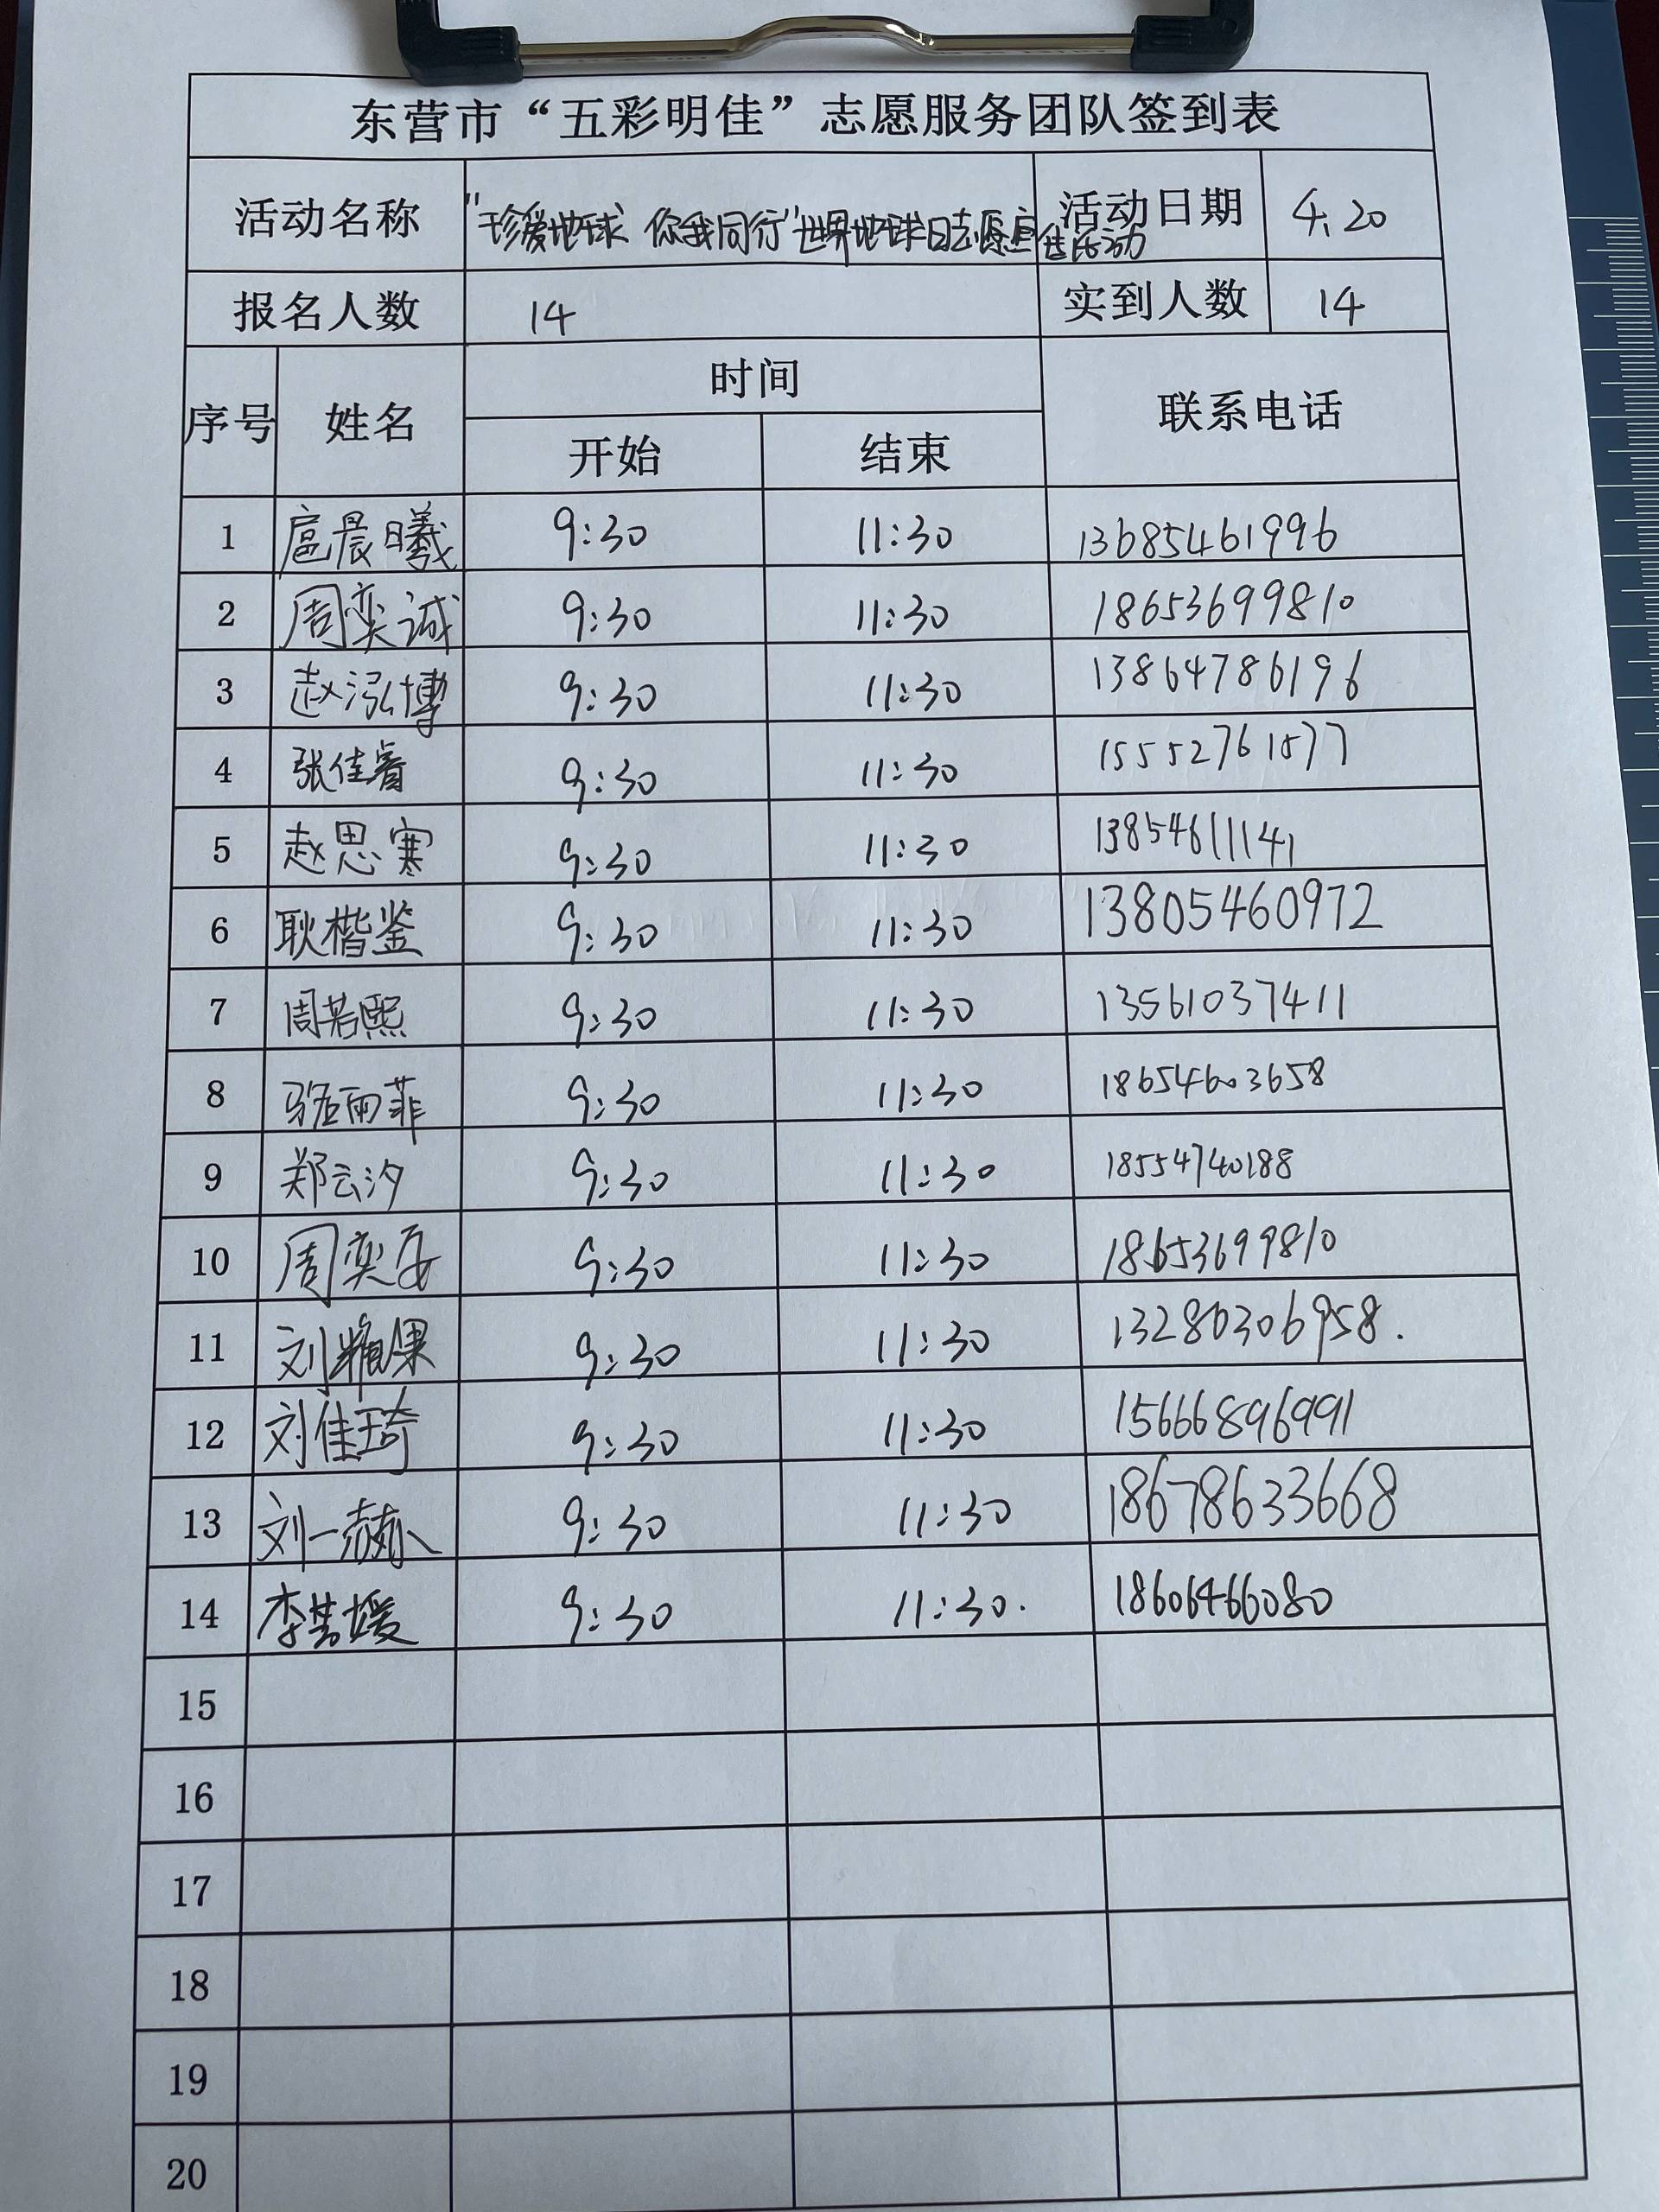 东营市“五彩明佳”志愿服务团队签到表
活动名称 "珍爱地球 你我同行"世界地球日志愿宣传活动 活动日期 4.20
报名人数 14 实到人数 14
序号 姓名 时间 联系电话
开始 结束
1 扈晨曦 9:30 11:30 13685461996
2 周奕诚 9:30 11:30 18653699810
3 赵泓博 9:30 11:30 13864786196
4 张佳睿 9:30 11:30 15552761577
5 赵思寒 9:30 11:30 13854611141
6 耿楷鉴 9:30 11:30 13805460972
7 周若熙 9:30 11:30 13561037411
8 骆雨菲 9:30 11:30 18654603658
9 郑云汐 9:30 11:30 18554740188
10 周奕 9:30 11:30 18653699810
11 刘 9:30 11:30 13280306958.
12 刘佳琦 9:30 11:30 15666896991
13 刘一赫 9:30 11:30 18678633668
14 李 媛 9:30 11:30. 18606466080
15
16
17
18
19
20